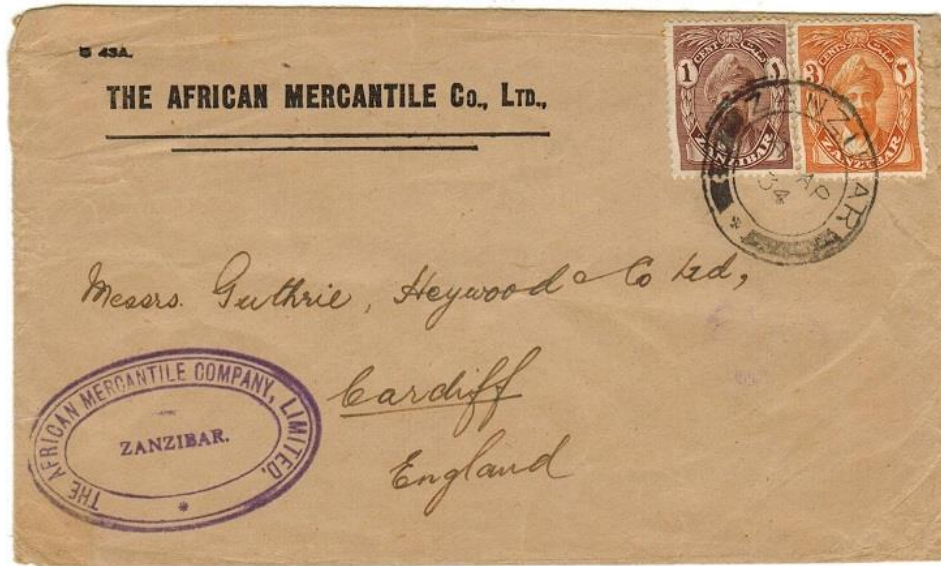 B 43A.
THE AFRICAN MERCANTILE Co., LTD.,
1 CENT ١
ZANZIBAR
3 CENTS ٣
ZANZIBAR
ZANZIBAR
AP
34
Messrs. Guthrie, Heywood & Co Ltd,
Cardiff
England
THE AFRICAN MERCANTILE COMPANY, LIMITED.
ZANZIBAR.